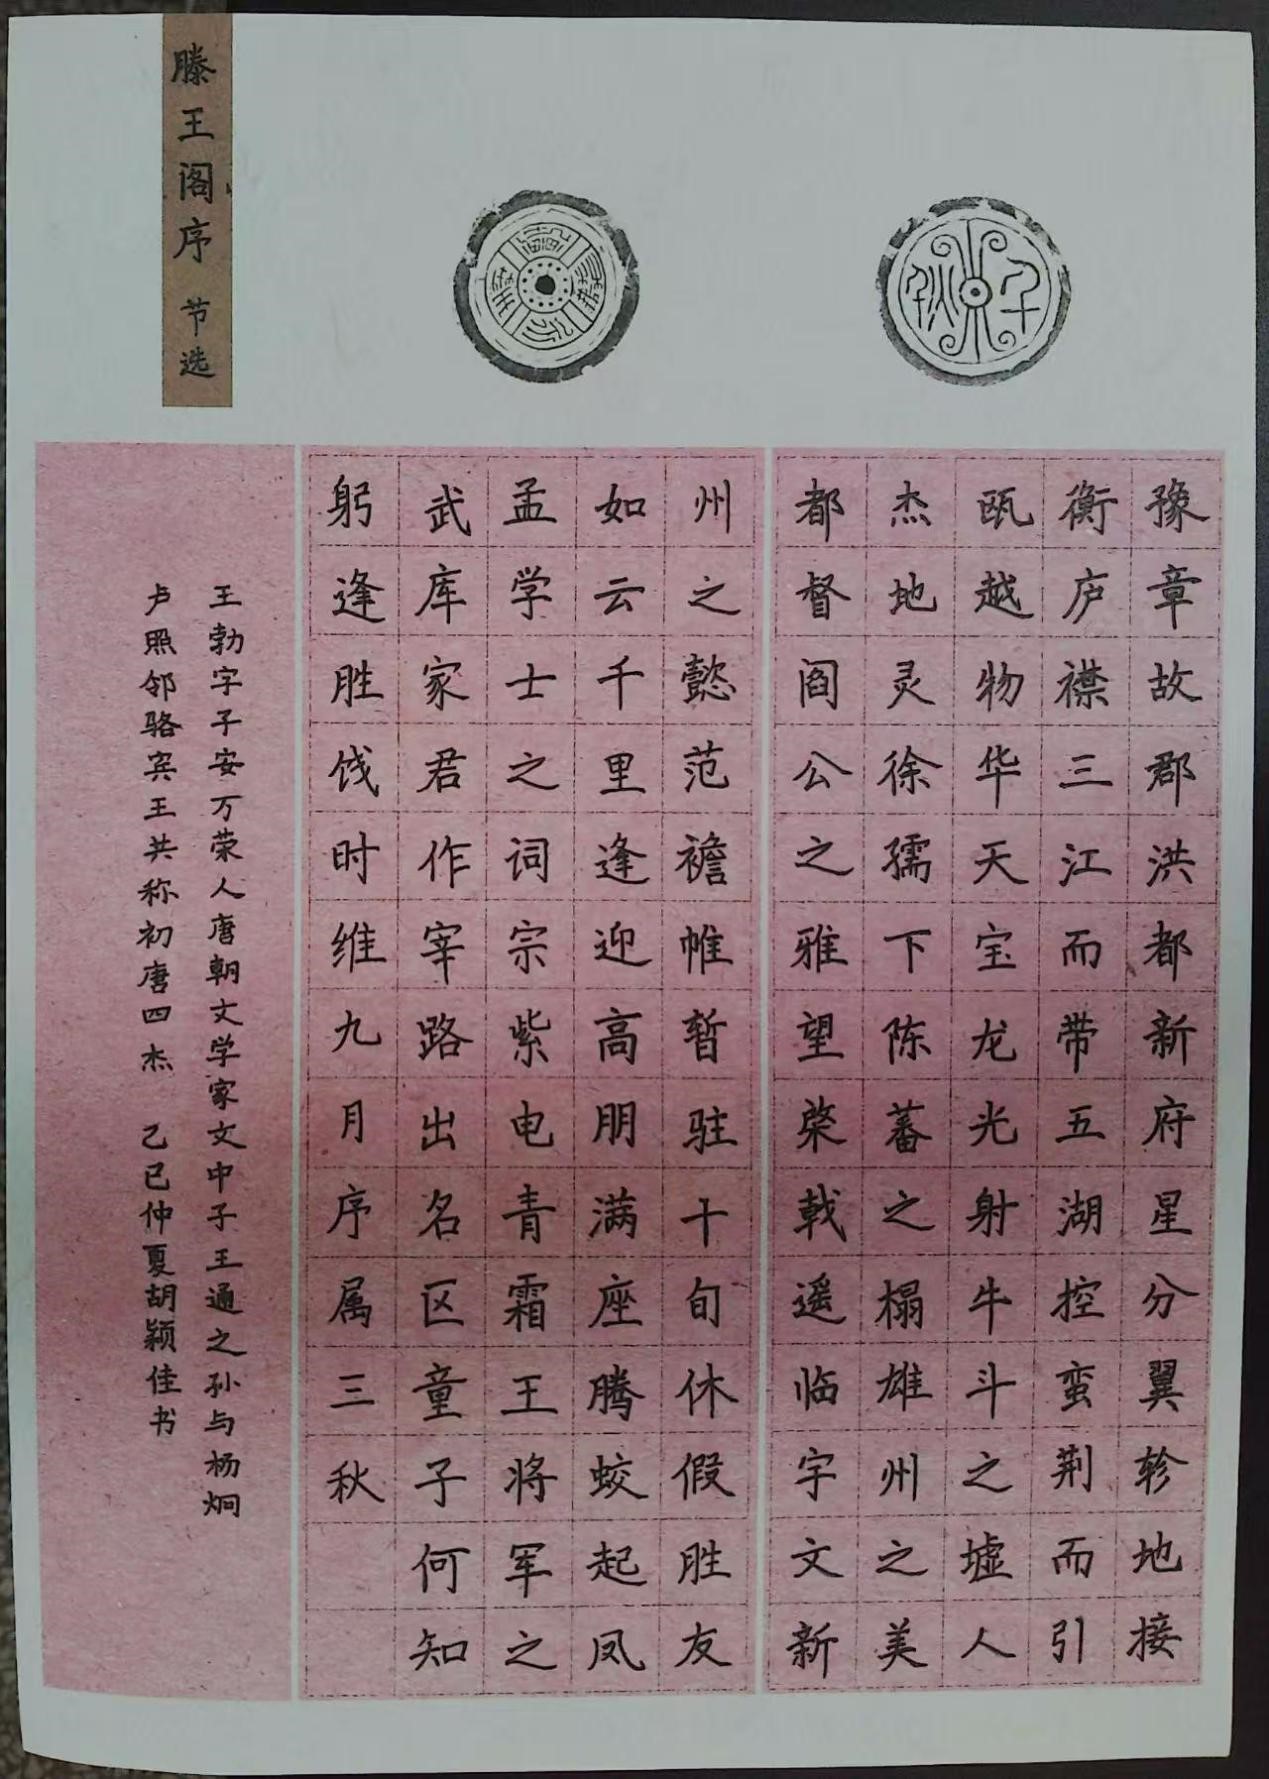 滕王阁序 节选
豫章故郡洪都新府星分翼轸地接
衡庐襟三江而带五湖控蛮荆而引
瓯越物华天宝龙光射牛斗之墟人
杰地灵徐孺下陈蕃之榻雄州之美
都督阎公之雅望棨戟遥临宇文新
州之懿范襜帷暂驻十旬休假胜友
如云千里逢迎高朋满座腾蛟起凤
孟学士之词宗紫电青霜王将军之
武库家君作宰路出名区童子何知
躬逢胜饯时维九月序属三秋
王勃字子安万荣人唐朝文学家文中子王通之孙与杨炯
卢照邻骆宾王共称初唐四杰 乙巳仲夏胡颖佳书